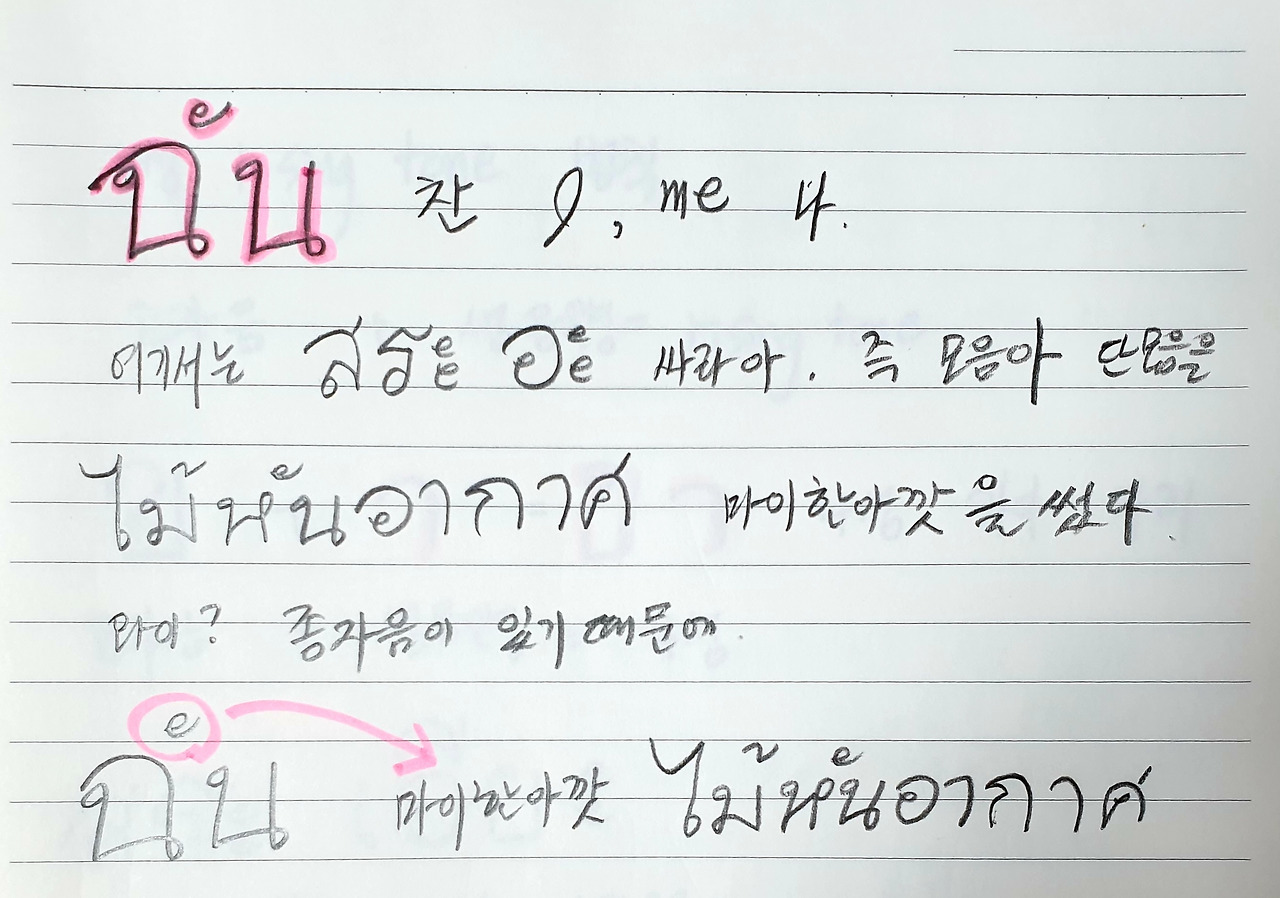 ฉัน 찬 I, me 나.
여기서는 สระ อะ 싸라아. 즉 모음아 단모음을
ไม้หันอากาศ 마이한아깟을 썼다.
와이? 종자음이 있기 때문에.
ฉัน 마이한아깟 ไม้หันอากาศ